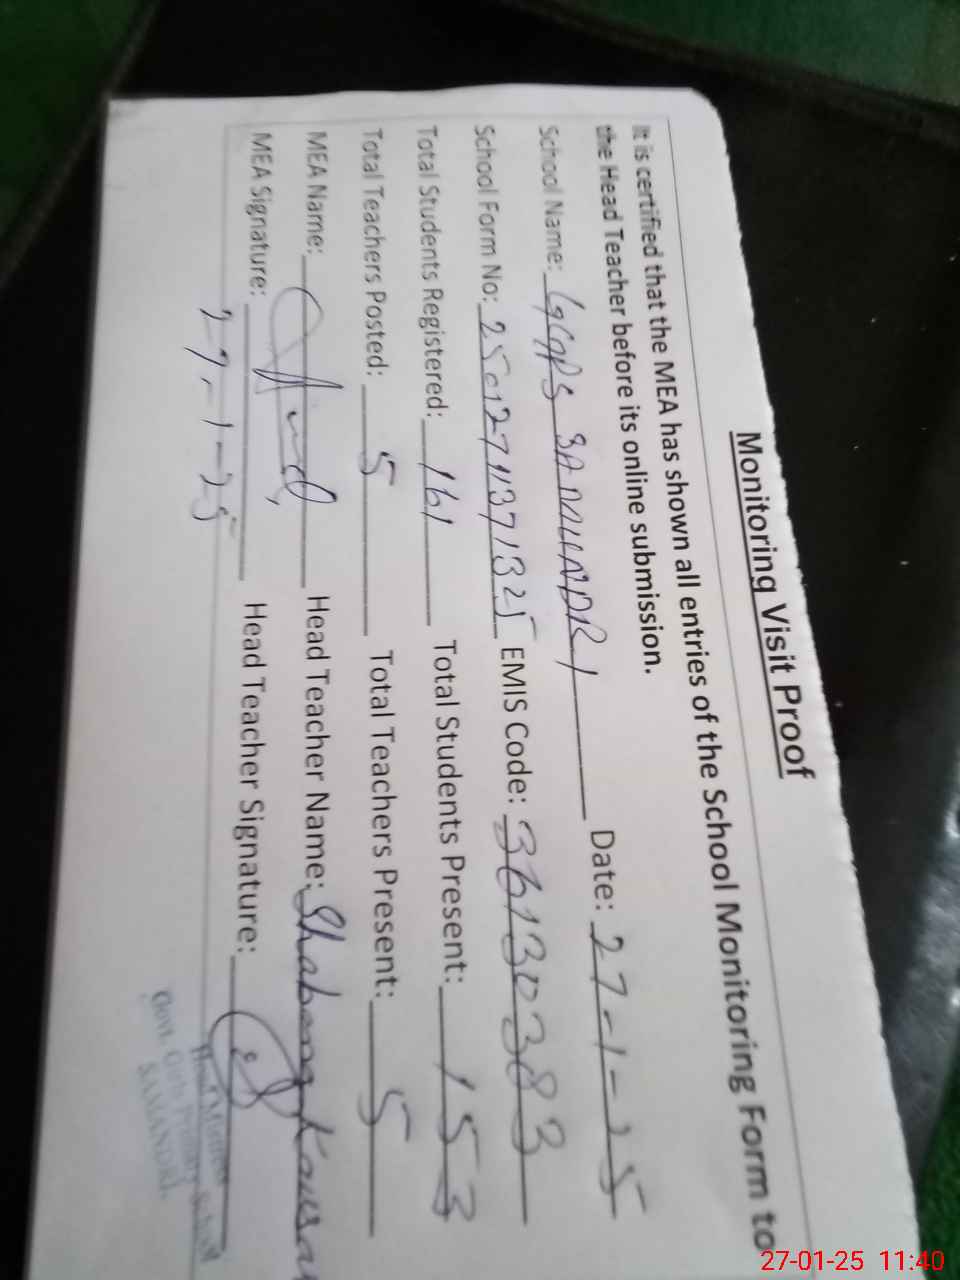 Monitoring Visit Proof
It is certified that the MEA has shown all entries of the School Monitoring Form to
the Head Teacher before its online submission.
School Name: GGPS SAMUNDRI Date: 27-1-25
School Form No: EMIS Code: 36130383
Total Students Registered: 161 Total Students Present: 153
Total Teachers Posted: 5 Total Teachers Present: 5
MEA Name: Head Teacher Name: Shabana Kausar
MEA Signature: Head Teacher Signature:
27-1-25
Head Mistress
Govt. Girls Primary School
SAMANDRI.
27-01-25 11:40